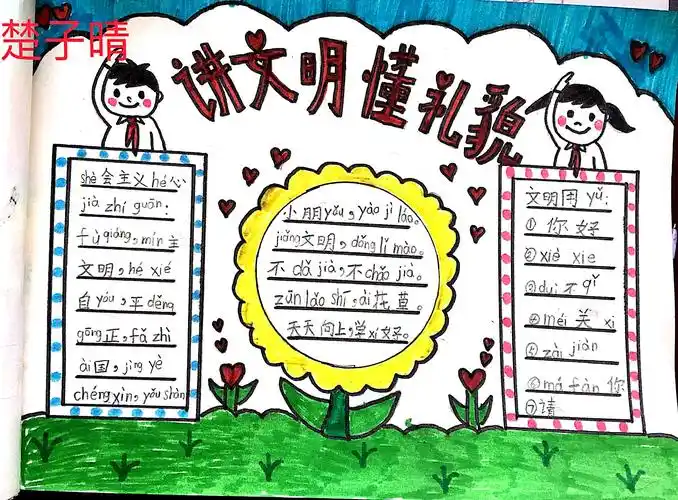 楚子晴
讲文明懂礼貌
shè会主义hé心
jià zhí guān:
fù qiáng,mín主
文明,hé xié
自yóu,平děng
gōng正,fǎ zhì
ài国,jìng yè
chéng xìn,yǒu shàn
小朋yǒu,yào jì láo。
jiǎng文明,dǒng lǐ mào。
不dǎ jià,不chǎo jià。
zūn lǎo shī,ài找草。
天天向上,学xí好。
文明用yǔ:
①你好
②xiè xie
③duì不qǐ
④méi关xi
⑤zài jiàn
⑥má fàn你
⑦请